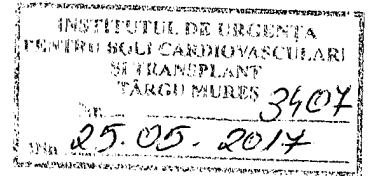 INSTITUTUL DE URGENTA
PENTRU BOLI CARDIOVASCULARE
SI TRANSPLANT
TÂRGU MURES
Nr. 3407
Ziua 25.05.2017